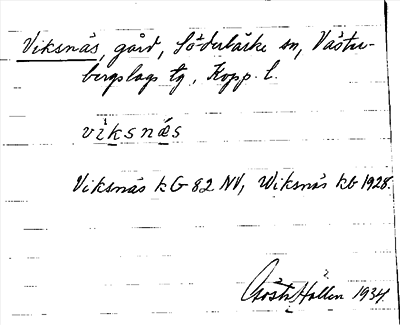 Viksnäs, gård, Söderbärke sn, Väster-
bergslags tg, Kopp. l.
viksnæs
Viksnäs kG 82 NV, Wiksnäs kb 1928.
Gösta Hallén 1934